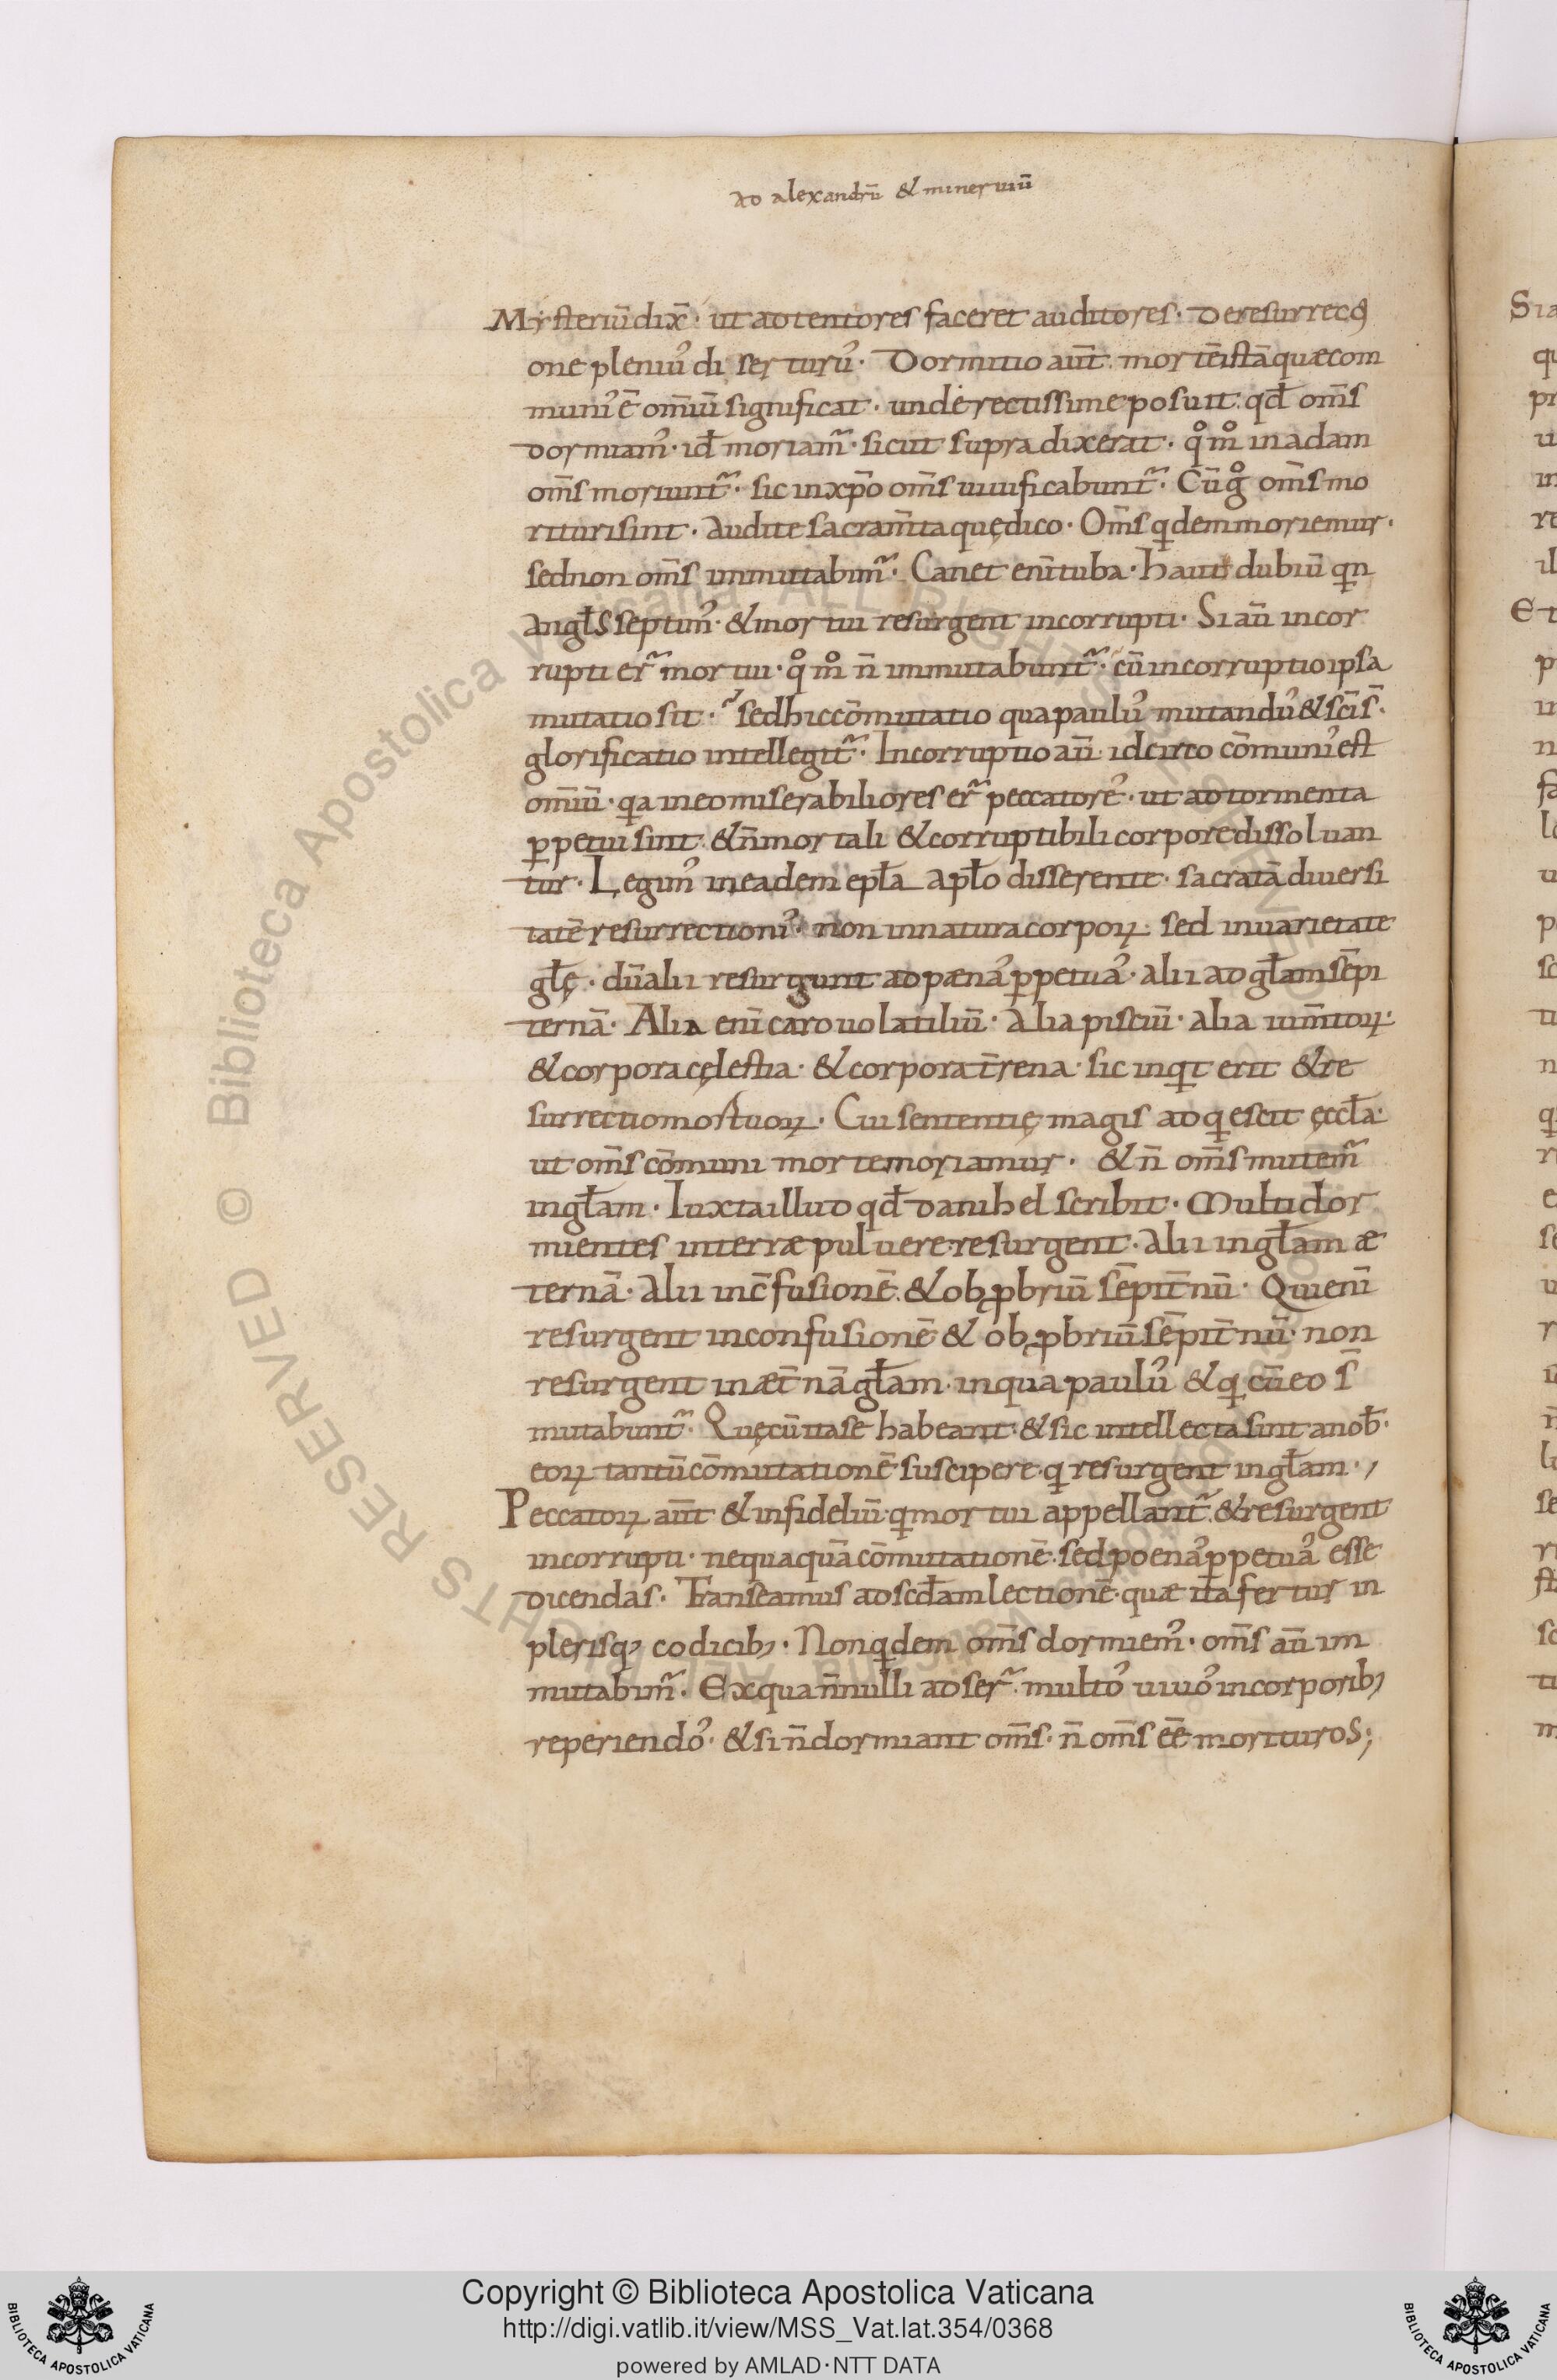 ad alexandrū & mineruiū
Mysteriū dix̄· ut adtentores faceret auditores· De resurrecti
one pleniu᾽ disserturu᾽· Dormitio aut̄ mortē istā quæ com
muni᾽ ē omīū significat· unde rectissime posuit qđ om̄s
dormiam᾽· id̄ moriam̃· sicut supra dixerat· qͦmͦ in adam
om̄s moriunt̃· sic in xp̄o om̄s uiuificabunt̃· Cū gͦ om̄s mo
rituri sint· Audite sacram̄ta quę dico· Om̄s qidem moriemur·
sed non om̄s immutabim̃· Canet enī tuba· haut dubiū qin
angłs septim᾽· & mortui resurgent incorrupti· Si aū incor
rupti er̃ mortui· qͦmͦ n̄ immutabunt̃· cū incorruptio ipsa
mutatio sit· sed hic cōmutatio qua paulu᾽ mutandu᾽ & sc̄is̄·
glorificatio intellegit̃· Incorruptio aū idcirco cōmuni᾽ est
omīū· qa in eo miserabiliores er̃ peccatore᾽· ut ad tormenta
p̱petui sint & n̄ mortali & corruptibili corpore dissoluan
tur· Legim᾽ in eadem epła apło disserente· sacratā diuersi
tatē resurrectioni᾽· non in natura corpoꝝ sed in uarietate
głę· dū alii resurgunt ad pœna᾽ p̱petua᾽· alii ad głam sēpi
ternā· Alia enī caro uolatiliū· Alia pisciū· alia ium̄toꝝ·
& corpora cęlestia· & corpora t̄rena· sic inqit erit & re
surrectio mortuoꝝ· Cui sententię magis adqiescit ęccła·
ut om̄s cōmuni morte moriamur· & n̄ om̄s mutem̃
in głam· Iuxta illud qđ danihel scribit· Multi dor
mientes in terræ puluere resurgent· Alii in głam æ
ternā· Alii in c̄fusionē & obꝓbriū sēpit̄nū· Qui enī
resurgent in confusionē & obꝓbriū sēpit̄nū· non
resurgent in æt̄nā głam· in qua paulu᾽ & qi cū eo s̄
mutabunt̃· Quę cū ita se habeant & sic intellecta sint a nob̄·
eoꝝ tantū cōmutationē suscipere qi resurgent in głam·,
Peccatoꝝ aut̄ & infideliū· qi mortui appellant̃ & resurgent
incorrupti· nequaquā cōmutationē sed poena᾽ p̱petua᾽ esse
dicendas· Transeamus ad scđam lectionē quæ ita fertur in
plerisq; codicib;· Non qidem om̄s dormiem᾽· om̄s aū im
mutabim̃· Ex qua n̄nulli adser̃ multo᾽ uiuo᾽ in corporib;
reperiendo᾽· & si n̄ dormiant om̄s· n̄ om̄s eē morituros;
© Biblioteca Apostolica Vaticana ALL RIGHTS RESERVED
Copyright © Biblioteca Apostolica Vaticana
http://digi.vatlib.it/view/MSS_Vat.lat.354/0368
powered by AMLAD·NTT DATA
BIBLIOTECA APOSTOLICA VATICANA
BIBLIOTECA APOSTOLICA VATICANA